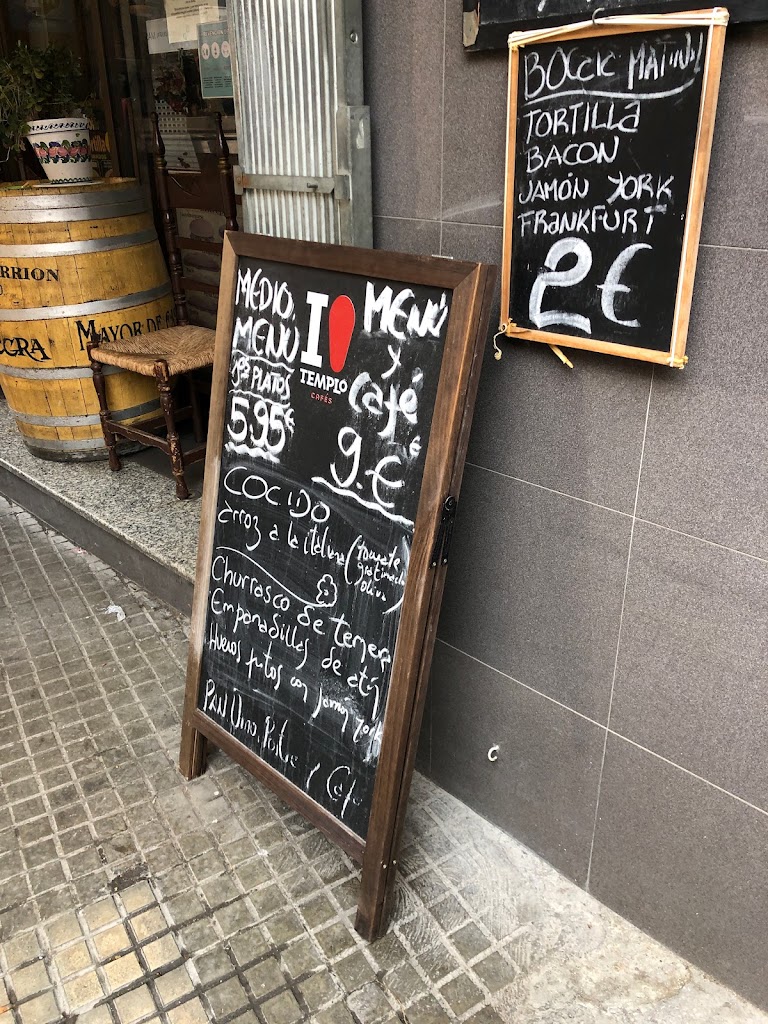 BOCCIE MATINAL
TORTILLA
BACON
JAMÓN YORK
FRANKFURT
2€
MEDIO
MENÚ
PLATOS
5.95€
I
TEMPLO
CAFÉS
MENÚ
y
Café
9.€
COCIDO
Arroz a la italiana (tomate,
gratinado
oliva)
Churrasco de ternera
Empanadillas de atún
Huevos fritos con jamón york
PAN Vino, Postre y Café
RRION
MAYOR DE